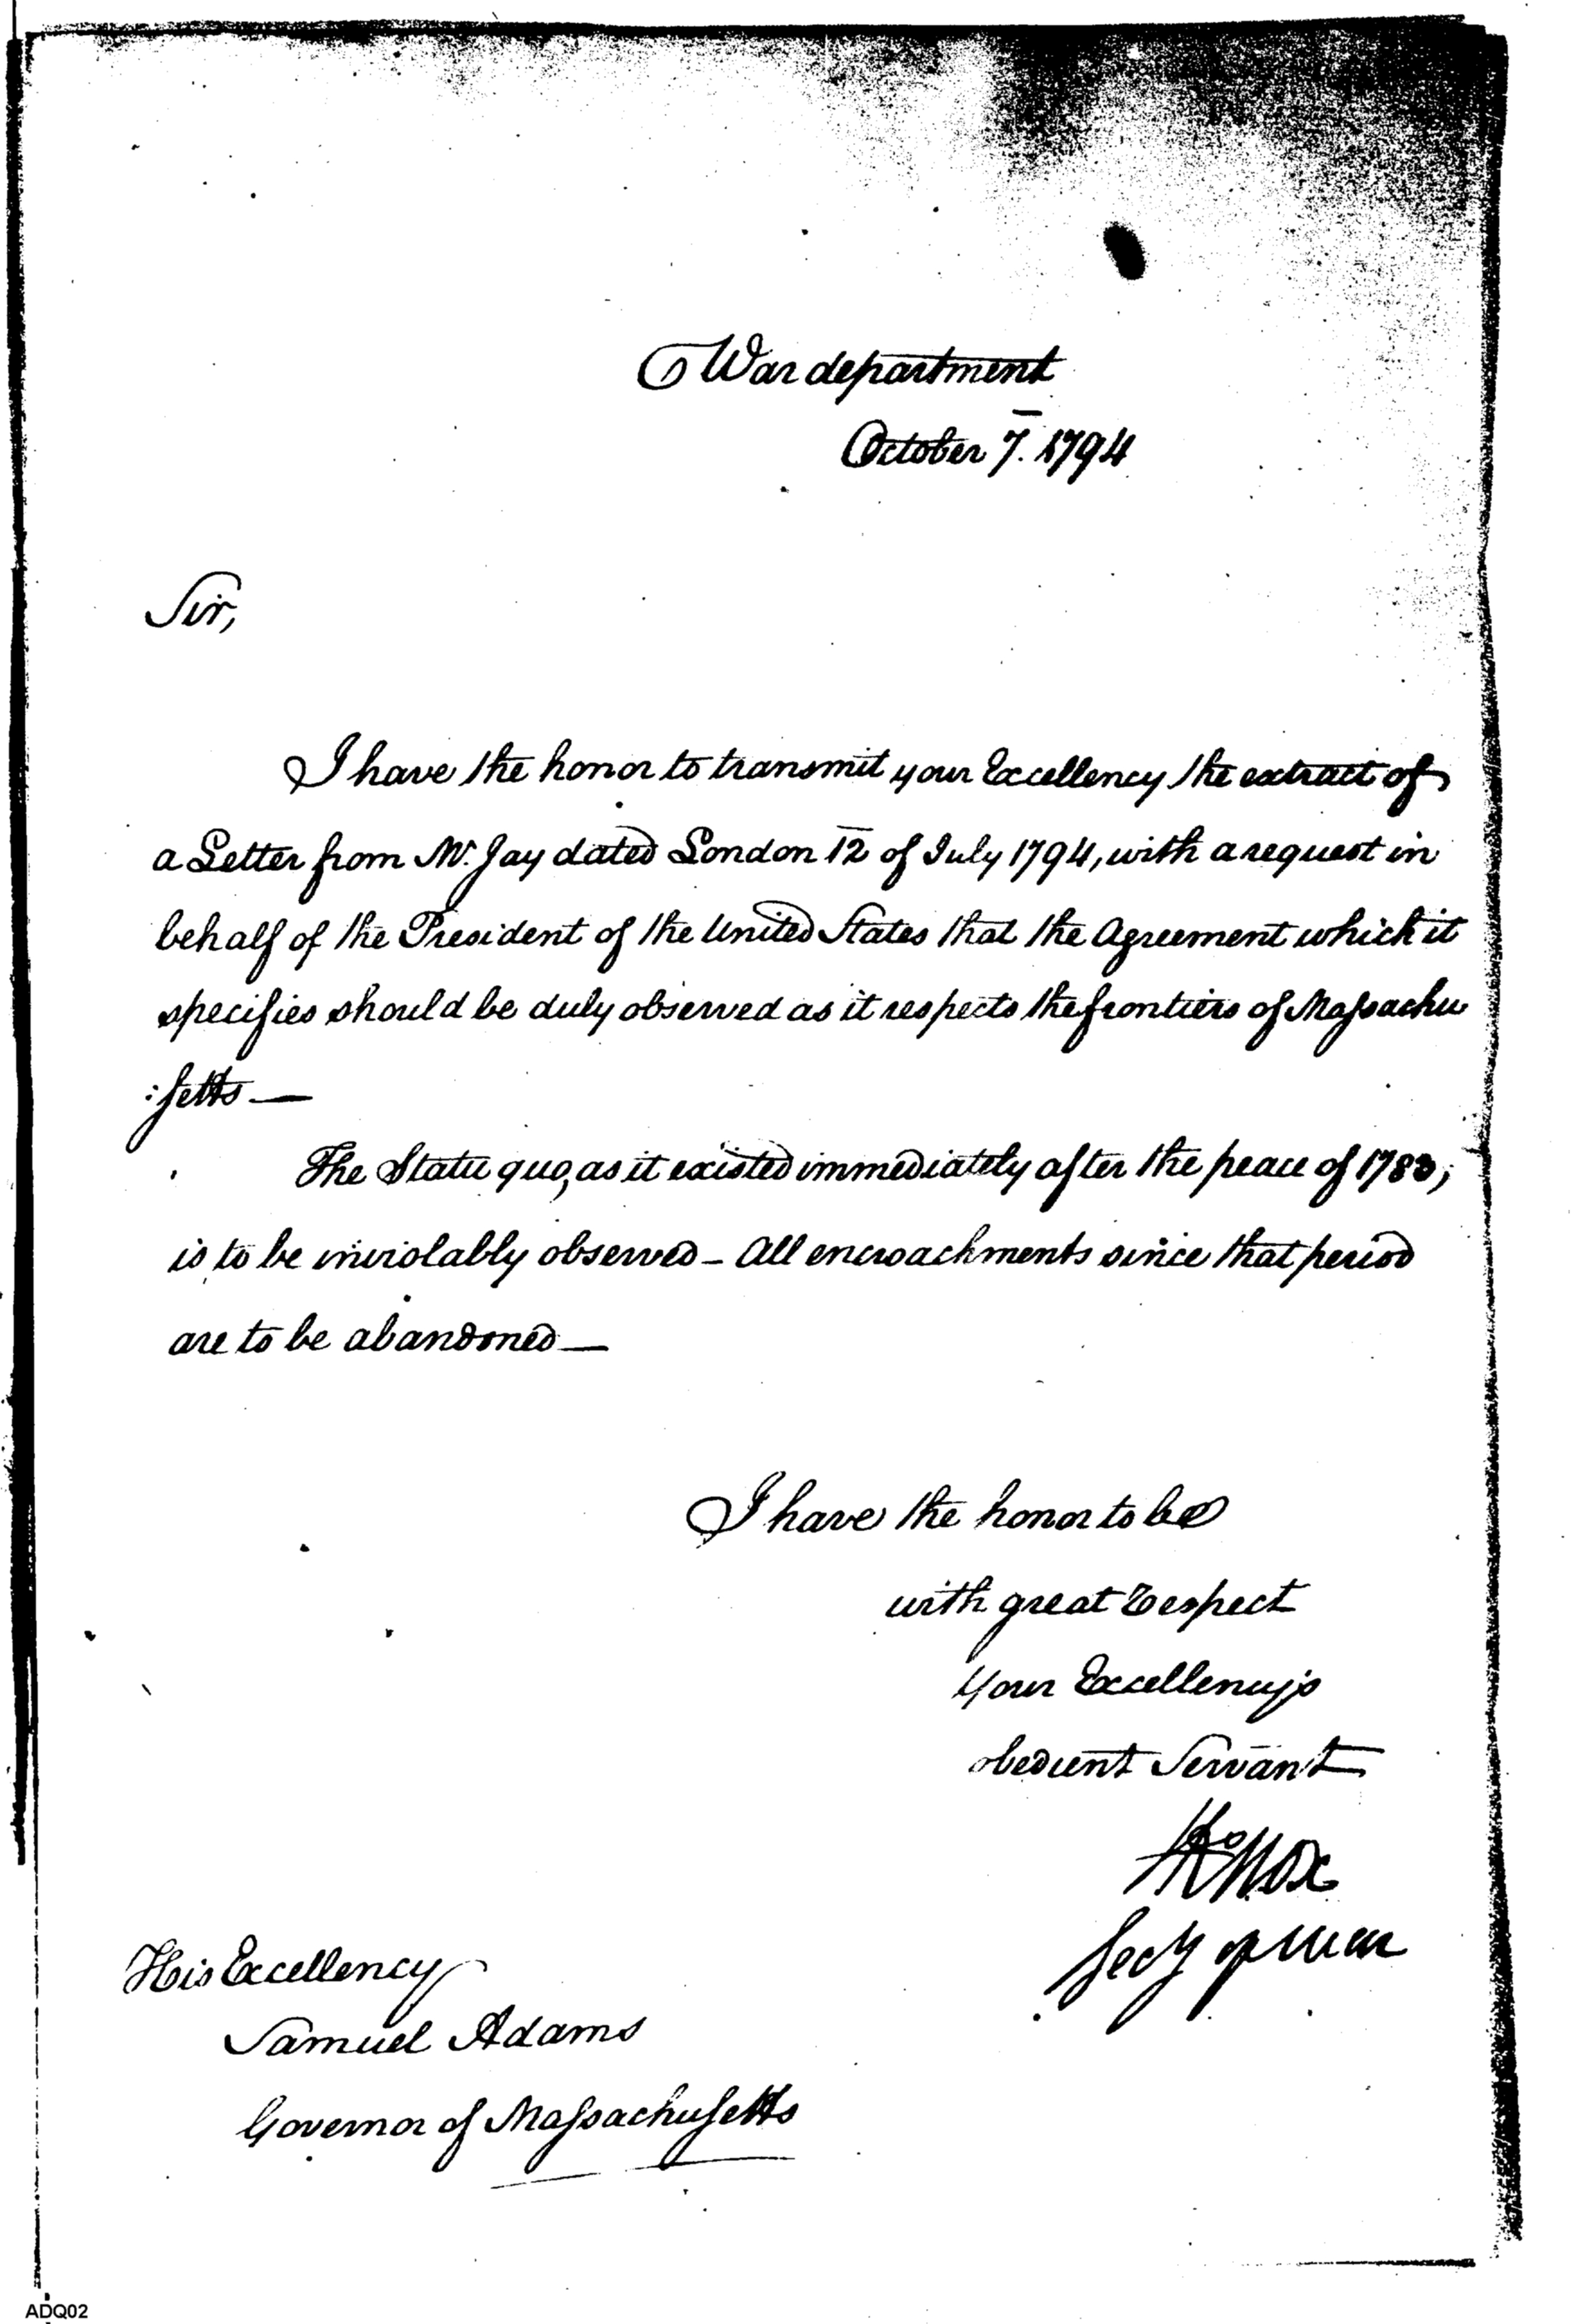 War department
October 7. 1794
Sir,
I have the honor to transmit your Excellency the extract of
a Letter from Mr. Jay dated London 12 of July 1794, with a request in
behalf of the President of the United States that the Agreement which it
specifies should be duly observed as it respects the frontiers of Massachu
:setts —
The Statu quo, as it existed immediately after the peace of 1783,
is to be inviolably observed – All encroachments since that period
are to be abandoned —
I have the honor to be
with great Respect
Your Excellency's
obedient Servant
HKnox
Secy of War
His Excellency
Samuel Adams
Governor of Massachusetts
ADQ02